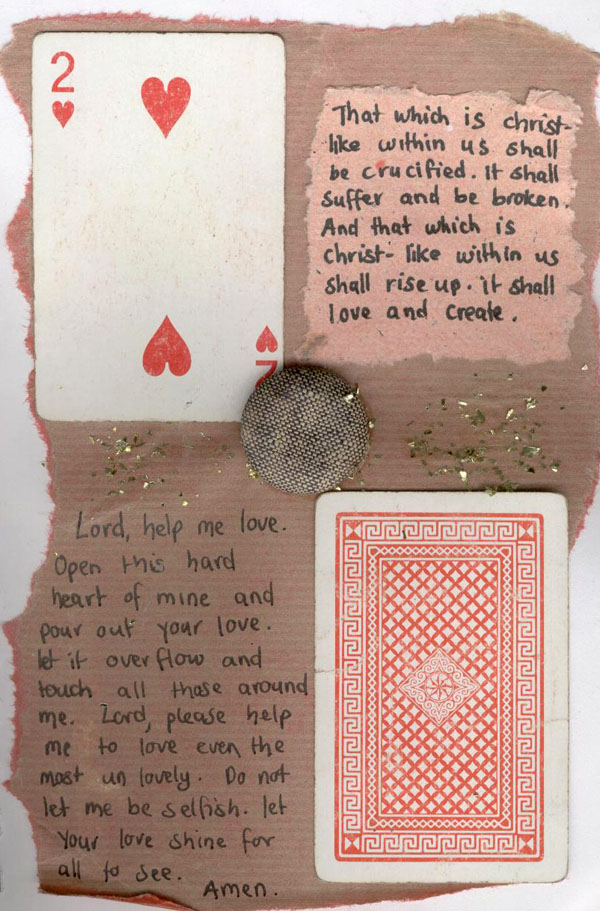 2
That which is christ-
like within us shall
be crucified. It shall
suffer and be broken.
And that which is
christ-like within us
shall rise up. it shall
love and create.
2
Lord, help me love.
Open this hard
heart of mine and
pour out your love.
let it overflow and
touch all those around
me. Lord, please help
me to love even the
most un lovely. Do not
let me be selfish. let
your love shine for
all to see.
Amen.